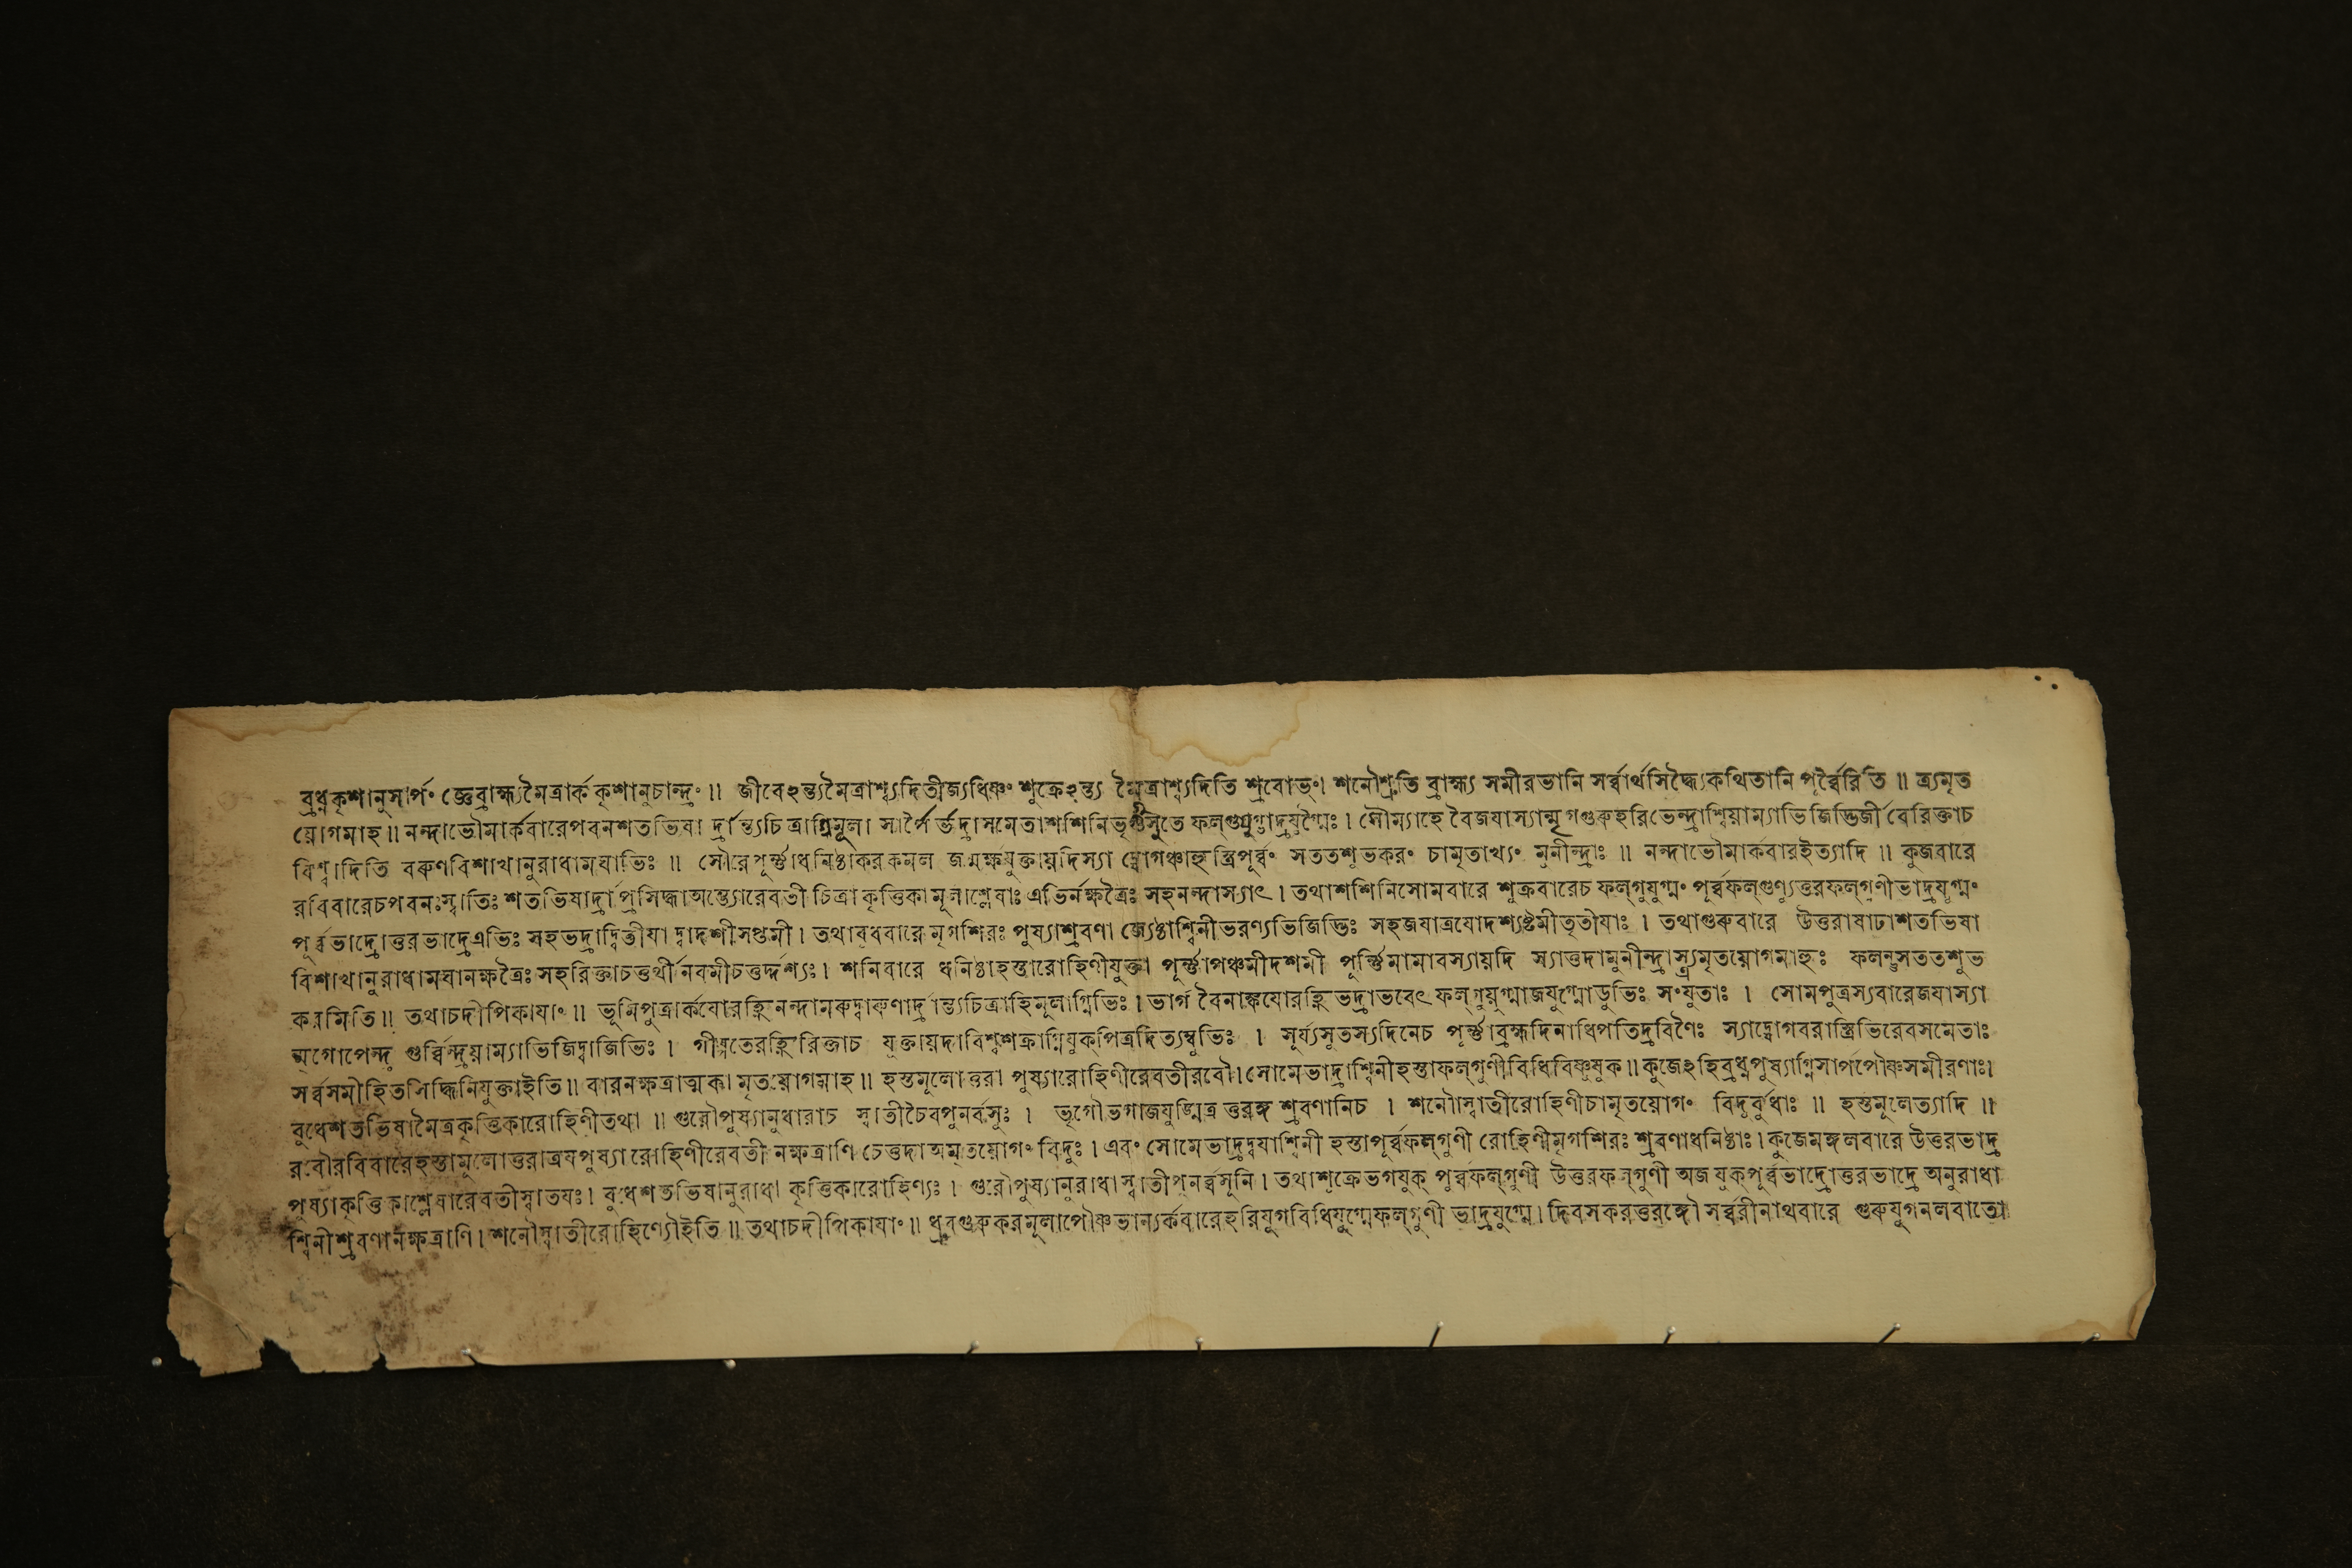 ব্রধ্নকৃশানুসার্পং জ্ঞেব্রাহ্ম্যমৈত্রার্ক কৃশানুচান্দ্রং ॥ জীবেঽন্ত্যমৈত্রাশ্ব্যদিতীজ্যধিষ্ণং শুক্রেঽন্ত্য মৈত্রাশ্ব্যদিতি শ্রবোভং। শনৌশ্রুতি ব্রাহ্ম্য সমীরভানি সর্ব্বার্থসিদ্ধ্যৈকথিতানি পূর্ব্বৈরিতি ॥ ত্র্যমৃত
য়োগমাহ ॥ নন্দাভৌমার্কবারেপবনশতভিষা র্দ্রান্ত্যচিত্রাগ্নিমূল। সার্পৈ র্ভদ্রাসমেতাশশিনিভৃগুসুতে ফল্গুযুগ্মাদ্রযুগ্মৈঃ । সৌম্যাহে বৈজযাস্যান্মৃগগুৰুহরিভেন্দ্রাশ্বিয়াম্যাভিজিদ্ভির্জীবেরিক্তাচ
বিশ্বাদিতি বৰুণবিশাখানুরাধামঘাভিঃ ॥ সৌরেপূর্ণ্ণাধনিষ্ঠাকরকমল জন্মর্ক্ষযুক্তায়দিস্যা দ্যোগঞ্চাহুস্ত্রিপূর্ব্বং সততশুভকরং চামৃতাখ্যং মুনীন্দ্রাঃ ॥ নন্দাভৌমার্কবারইত্যাদি ॥ কুজবারে
রবিবারেচপবনঃস্বাতিঃ শতভিষার্দ্রা প্রসিদ্ধাঅন্ত্যোরেবতী চিত্রা কৃত্তিকামূলাশ্লেষাঃ এভির্নক্ষত্রৈঃ সহনন্দাস্যাৎ । তথাশশিনিসোমবারে শুক্রবারেচ ফল্গুযুগ্মং পূর্ব্বফল্গুণ্যুত্তরফল্গুণীভাদ্রযুগ্মং
পূর্ব্বভাদ্রোত্তরভাদ্রেএভিঃ সহভদ্রাদ্বিতীযা দ্বাদশীসপ্তমী । তথাবুধবারে মৃগশিরঃ পুষ্যাশ্রবণা জ্যেষ্ঠাশ্বিনীভরণ্যভিজিদ্ভিঃ সহজযাত্রযোদশ্যষ্টমীতৃতীযাঃ । তথাগুৰুবারে উত্তরাষাঢাশতভিষা
বিশাখানুরাধামঘানক্ষত্রৈঃ সহরিক্তাচতুর্থী নবমীচতুর্দ্দশ্যঃ। শনিবারে ধনিষ্ঠাহস্তারোহিণীযুক্তা পূর্ণ্ণাপঞ্চমীদশমী পূর্ণ্ণিমামাবস্যায়দি স্যাত্তদামুনীন্দ্রাস্ত্র্যমৃতয়োগমাহুঃ ফলন্তুসততশুভ
করমিতি ॥ তথাচদীপিকাযাং ॥ ভূমিপুত্রার্কযোরহ্নিনন্দামৰুদ্বাৰুণার্দ্রান্ত্যচিত্রাহিমূলাগ্নিভিঃ । ভার্গ বৈনাঙ্কযোরহ্নিভদ্রাভবেৎ ফল্গুয়ুগ্মাজযুগ্মোডুভিঃ সংযুতাঃ । সোমপুত্রস্যবারেজযাস্যা
ন্মৃগোপেন্দ্র গুর্ব্বিন্দ্রয়াম্যাভিজিদ্বাজিভিঃ । গীষ্পতেরহ্নিরিক্তাচ যুক্তায়দাবিশ্বশক্রাগ্নিযুক্পিত্রদিত্যম্বুভিঃ । সূর্য্যসুতস্যদিনেচ পূর্ণ্ণাব্রহ্মদিনাধিপতিদ্রবিণৈঃ স্যাদ্যোগবরাস্ত্রিভিরেবসমেতাঃ
সর্ব্বসমীহিতসিদ্ধিনিযুক্তাইতি ॥ বারনক্ষত্রাত্মকা মৃতয়োগমাহ ॥ হস্তমূলোত্তরা পুষ্যারোহিণীরেবতীরবৌ। সোমেভাদ্রাশ্বিনীহস্তাফল্গুণীবিধিবিষ্ণুযুক ॥ কুজেঽহিব্রধ্নপুষ্যাগ্নিসার্পপৌষ্ণসমীরণাঃ।
বুধেশতভিষামৈত্রকৃত্তিকারোহিণীতথা ॥ গুরৌপুষ্যানুধারাচ স্বাতীচৈবপুনর্বসুঃ । ভৃগৌভগাজযুঙ্মিত্র ত্তরঙ্গ শ্রবণানিচ । শনৌস্বাতীরোহিণীচামৃতয়োগং বিদুর্বুধাঃ ॥ হস্তমূলেত্যাদি ॥
রবৌরবিবারেহস্তামূলোত্তরাত্রযপুষ্যারোহিণীরেবতী নক্ষত্রাণি চেত্তদাঅমৃতয়োগং বিদুঃ । এবং সোমেভাদ্রদ্বযাশ্বিনী হস্তাপূর্ব্বফল্গুণী রোহিণীমৃগশিরঃ শ্রবণাধনিষ্ঠাঃ । কুজেমঙ্গলবারে উত্তরভাদ্র
পুষ্যাকৃত্তিকাশ্লেষারেবতীস্বাতযঃ। বুধেশতভিষানুরাধা কৃত্তিকারোহিণ্যঃ । গুরৌপুষ্যানুরাধাস্বাতীপুনর্ব্বসূনি । তথাশুক্রেভগযুক্ পূর্ব্বফল্গুণী উত্তরফল্গুণী অজযুক্পূর্ব্বভাদ্রোত্তরভাদ্রে অনুরাধা
শ্বিনীশ্রবণানক্ষত্রাণি । শনৌস্বাতীরোহিণ্যৌইতি ॥ তথাচদীপিকাযাং ॥ ধ্রুবগুৰুকরমূলাপৌষ্ণভান্যর্কবারেহরিযুগবিধিযুগ্মেফল্গুণী ভাদ্রযুগ্মে। দিবসকরত্তরঙ্গৌ সর্ব্বরীনাথবারে গুৰুযুগনলবাতো